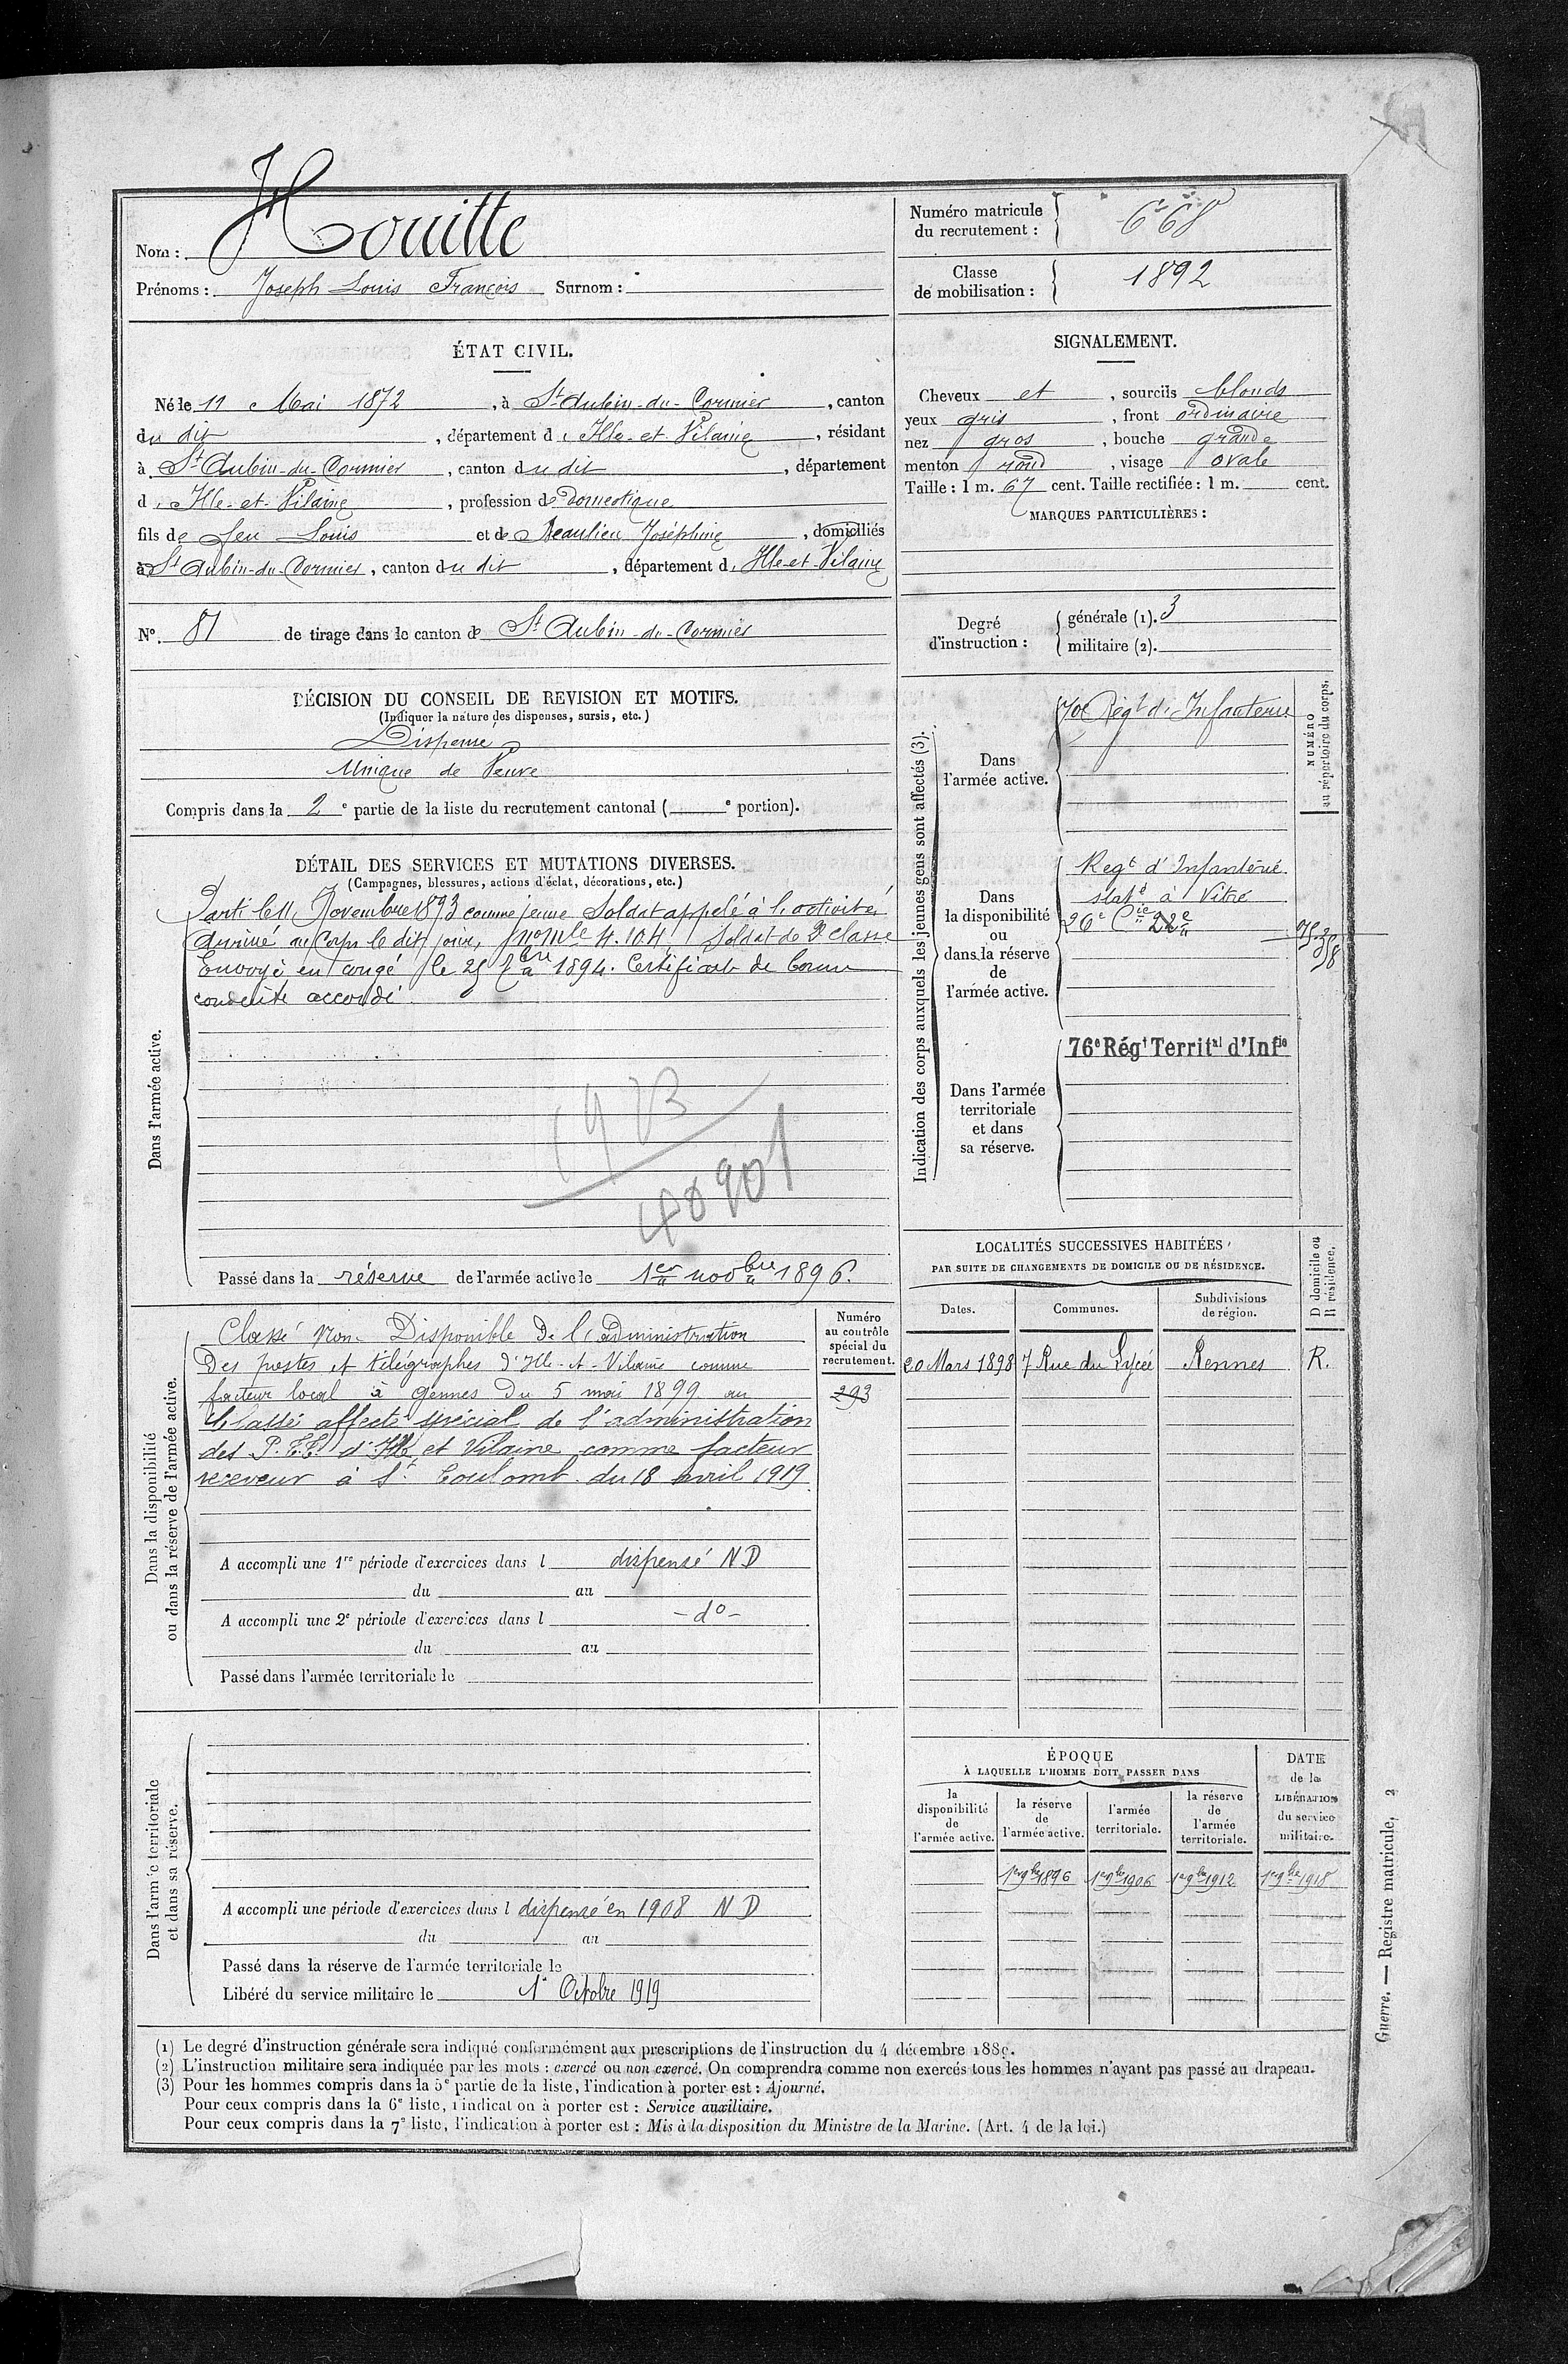 Nom : Houitte
Prénoms : Joseph Louis François Surnom :
Numéro matricule du recrutement : 668
Classe de mobilisation : 1892
ÉTAT CIVIL.
Né le 11 Mai 1872, à St Aubin-du-Cormier, canton
du dit, département d'Ille-et-Vilaine, résidant
à St Aubin-du-Cormier, canton du dit, département
d'Ille-et-Vilaine, profession de Domestique
fils de feu Louis et de Beaulieu Joséphine, domiciliés
à St Aubin-du-Cormier, canton du dit, département d'Ille-et-Vilaine
N° 81 de tirage dans le canton de St Aubin-du-Cormier
SIGNALEMENT.
Cheveux et, sourcils blonds
yeux gris, front ordinaire
nez gros, bouche grande
menton rond, visage ovale
Taille : 1 m. 67 cent. Taille rectifiée : 1 m. cent.
MARQUES PARTICULIÈRES :
Degré d'instruction :
générale (1). 3
militaire (2).
DÉCISION DU CONSEIL DE REVISION ET MOTIFS.
(Indiquer la nature des dispenses, sursis, etc.)
Dispensé
Unique de Veuve
Compris dans la 2e partie de la liste du recrutement cantonal ( e portion).
DÉTAIL DES SERVICES ET MUTATIONS DIVERSES.
(Campagnes, blessures, actions d'éclat, décorations, etc.)
Dans l'armée active.
Parti le 11 Novembre 1893 comme jeune Soldat appelé à l'activité
Arrivé au Corps le dit jour, no mle 4.104 Soldat de 2e classe
Envoyé en congé le 25 7bre 1894. Certificat de bonne
conduite accordé.
1923
40901
Passé dans la réserve de l'armée active le 1er novbre 1896.
Indication des corps auxquels les jeunes gens sont affectés (3).
NUMÉRO au répertoire du corps.
Dans l'armée active.
70e Régt d'Infanterie
Dans la disponibilité ou dans la réserve de l'armée active.
Regt d'Infanterie
stat é à Vitré
26e Cie 22e
Dans l'armée territoriale et dans sa réserve.
76e Régt Territal d'Infie
LOCALITÉS SUCCESSIVES HABITÉES
PAR SUITE DE CHANGEMENTS DE DOMICILE OU DE RÉSIDENCE.
D domicile ou R résidence.
Dates. Communes. Subdivisions de région.
20 Mars 1898 7 Rue du Lycée Rennes R.
Dans la disponibilité ou dans la réserve de l'armée active.
Numéro au contrôle spécial du recrutement.
293
Classé Non Disponible de l'administration
Des postes et télégraphes d'Ille-et-Vilaine comme
facteur local à Gennes du 5 mai 1899 au
Classé affecté spécial de l'administration
des P.T.T. d'Ille et Vilaine comme facteur
receveur à St Coulomb du 18 avril 1919
A accompli une 1re période d'exercices dans l dispensé ND
du au
A accompli une 2e période d'exercices dans l -do-
du au
Passé dans l'armée territoriale le
Dans l'armée territoriale et dans sa réserve.
A accompli une période d'exercices dans l dispensé en 1908 ND
du au
Passé dans la réserve de l'armée territoriale le
Libéré du service militaire le 1er Octobre 1919
ÉPOQUE
À LAQUELLE L'HOMME DOIT PASSER DANS
la disponibilité de l'armée active. la réserve de l'armée active. l'armée territoriale. la réserve de l'armée territoriale.
DATE de la LIBÉRATION du service militaire.
1er 9bre 1896 1er 9bre 1906 1er 9bre 1912 1er 9bre 1918
(1) Le degré d'instruction générale sera indiqué conformément aux prescriptions de l'instruction du 4 décembre 1889.
(2) L'instruction militaire sera indiquée par les mots : exercé ou non exercé. On comprendra comme non exercés tous les hommes n'ayant pas passé au drapeau.
(3) Pour les hommes compris dans la 5e partie de la liste, l'indication à porter est : Ajourné.
Pour ceux compris dans la 6e liste, l'indication à porter est : Service auxiliaire.
Pour ceux compris dans la 7e liste, l'indication à porter est : Mis à la disposition du Ministre de la Marine. (Art. 4 de la loi.)
Guerre. — Registre matricule, 2